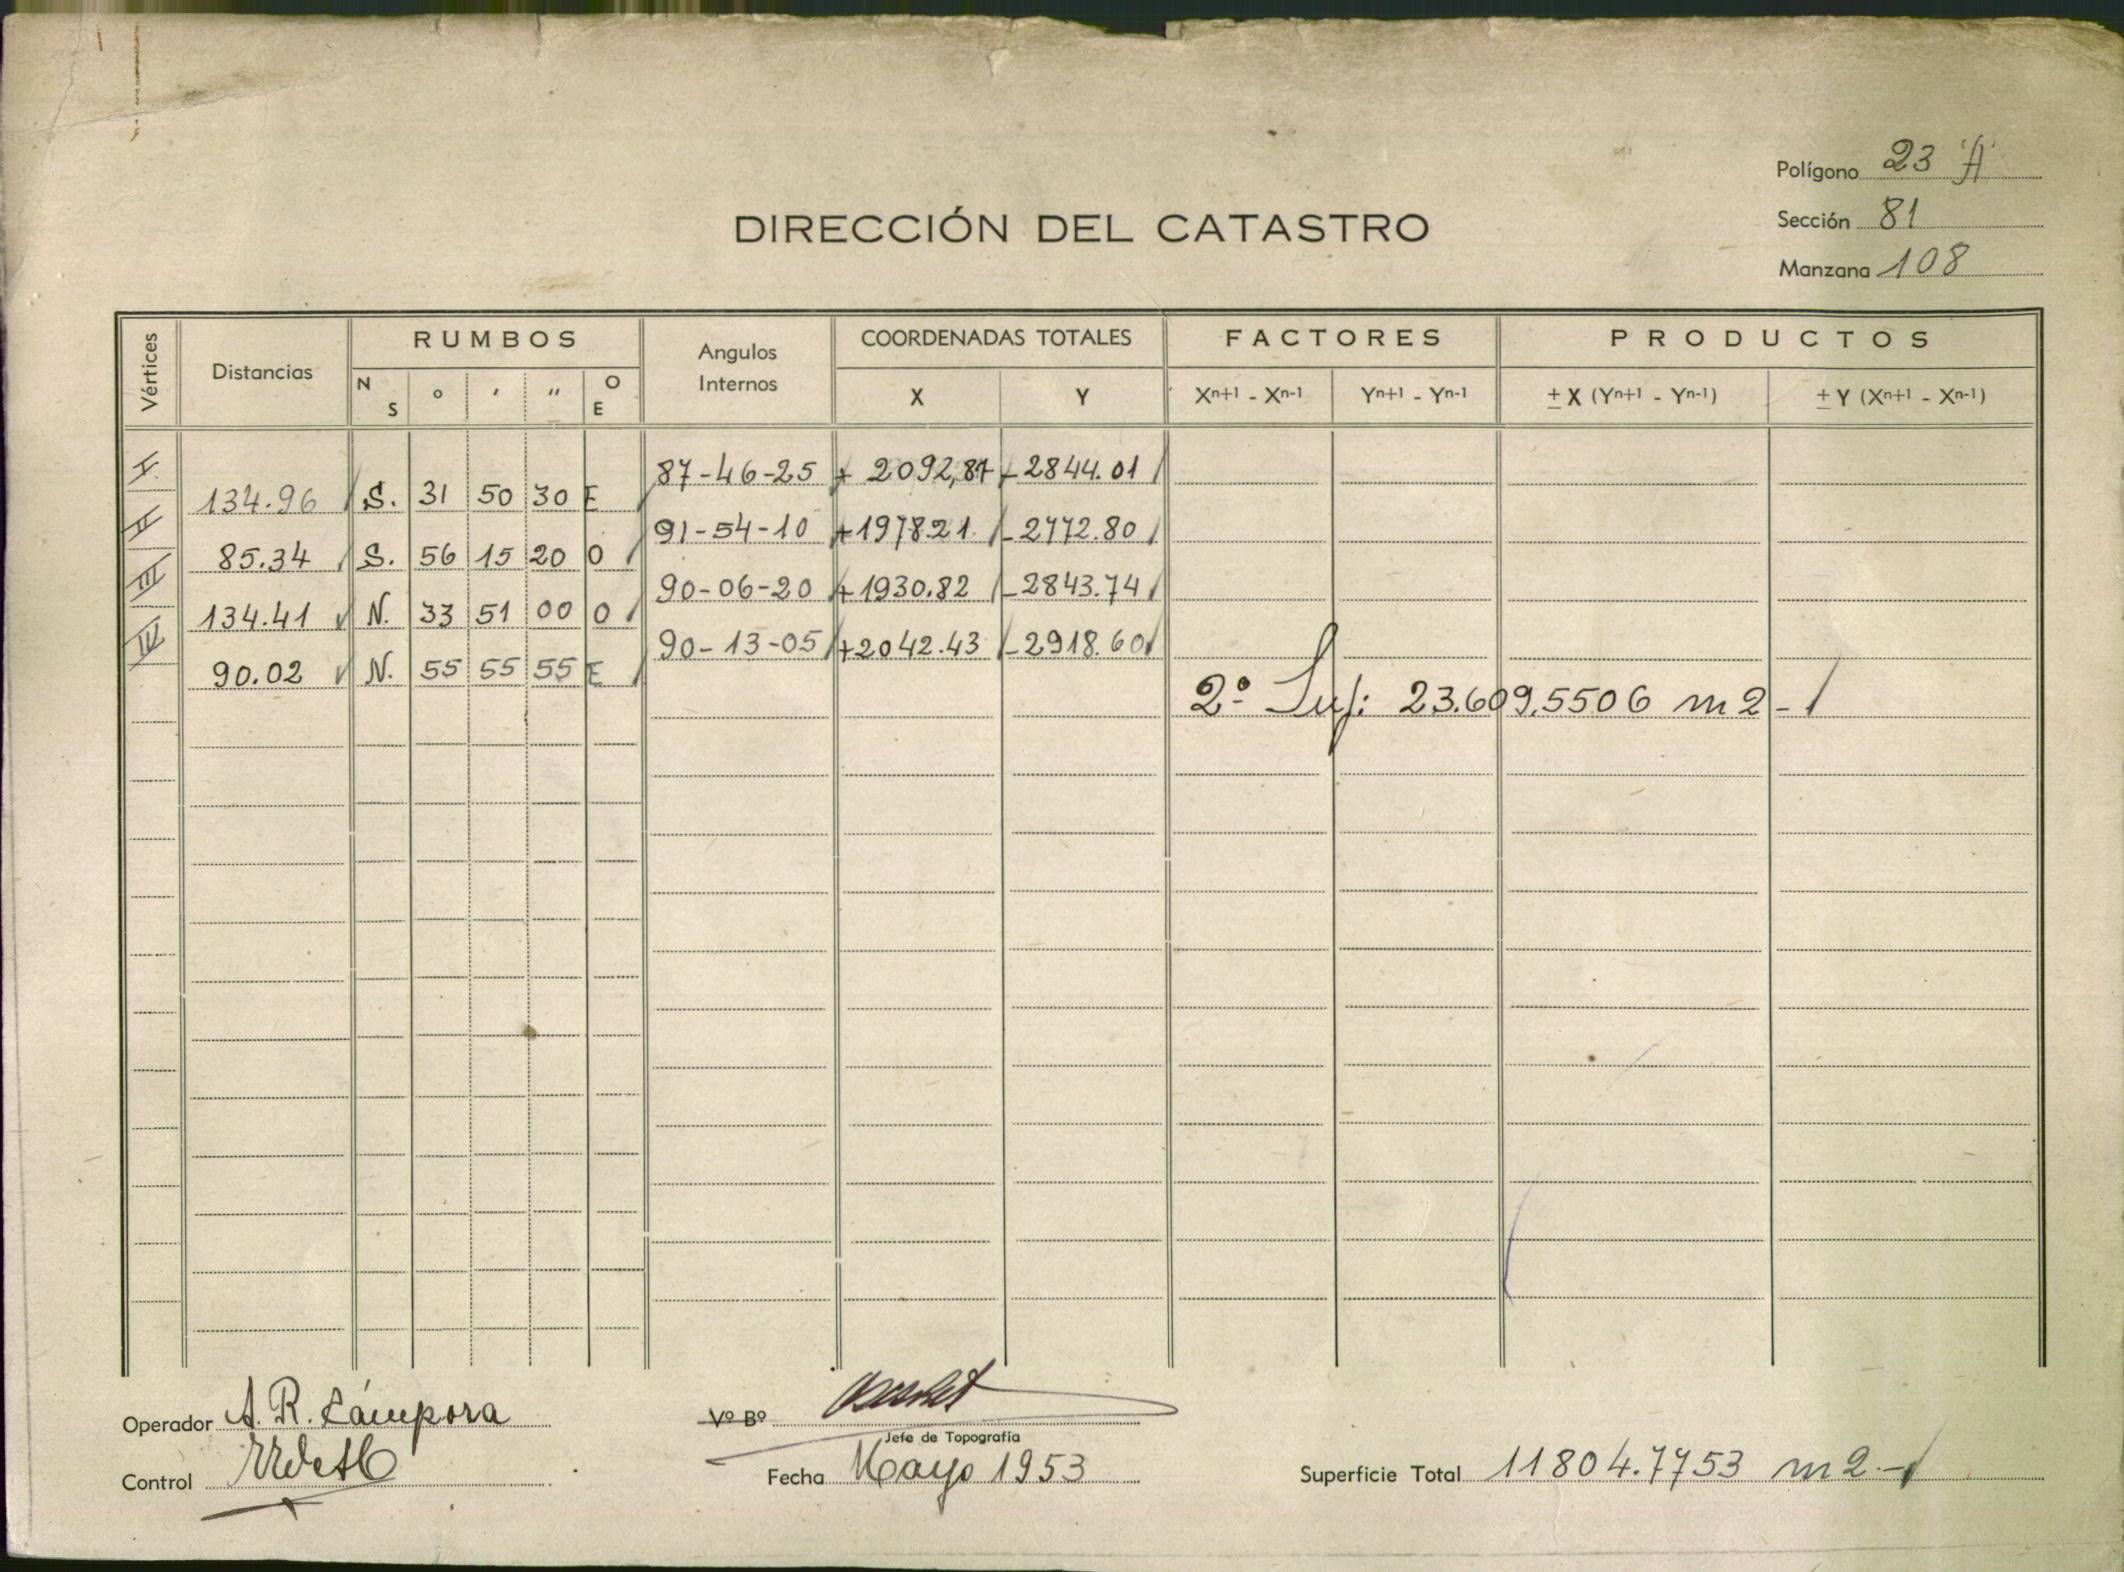 Polígono 23 "A"
DIRECCIÓN DEL CATASTRO
Sección 81
Manzana 108
Vértices Distancias RUMBOS Angulos Internos COORDENADAS TOTALES FACTORES PRODUCTOS
N S ° ' '' O E X Y Xn+1 - Xn-1 Yn+1 - Yn-1 ± X (Yn+1 - Yn-1) ± Y (Xn+1 - Xn-1)
I 87-46-25 + 2092,87 - 2844.01
134.96 S. 31 50 30 E
II 91-54-10 + 1978.21 - 2772.80
85.34 S. 56 15 20 O
III 90-06-20 + 1930.82 - 2843.74
134.41 N. 33 51 00 O
IV 90-13-05 + 2042.43 - 2918.60
90.02 N. 55 55 55 E
2º Sup: 23.609,5506 m2 -
Operador A. R. Cámpora
Vº Bº
Jefe de Topografía
Control
Fecha Mayo 1953
Superficie Total 11804.7753 m2.-